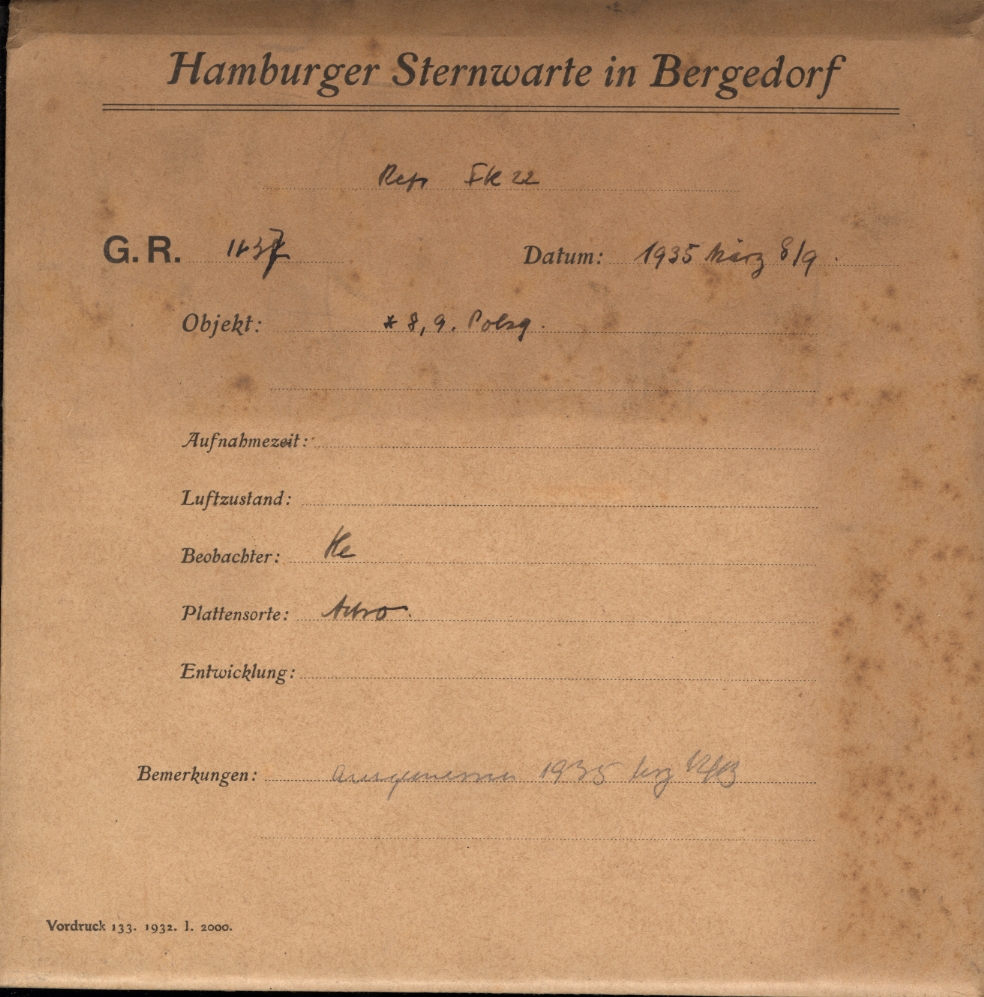 Hamburger Sternwarte in Bergedorf
Rep FK 22
G. R. 1137 Datum: 1935 März 8/9.
Objekt: * 8, 9. Polsq.
Aufnahmezeit:
Luftzustand:
Beobachter: He
Plattensorte: Astro.
Entwicklung:
Bemerkungen: 1935
Vordruck 133. 1932. I. 2000.